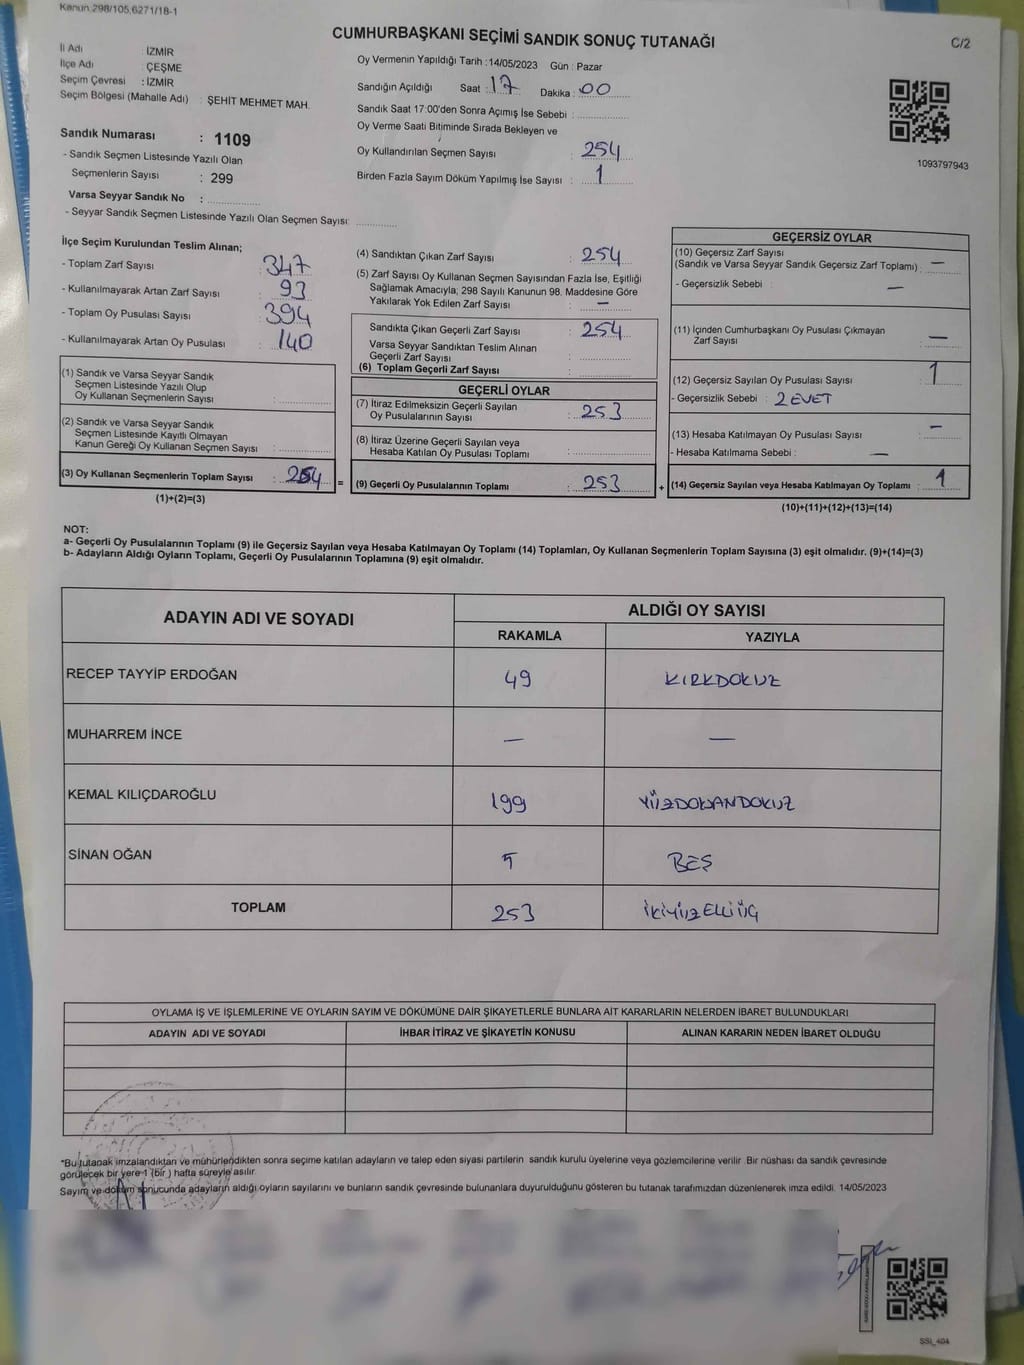 Kanun 298/105,6271/18-1
CUMHURBAŞKANI SEÇİMİ SANDIK SONUÇ TUTANAĞI
C/2
İl Adı : İZMİR
İlçe Adı : ÇEŞME
Seçim Çevresi : İZMİR
Seçim Bölgesi (Mahalle Adı) : ŞEHİT MEHMET MAH.
Sandık Numarası : 1109
- Sandık Seçmen Listesinde Yazılı Olan
Seçmenlerin Sayısı : 299
Varsa Seyyar Sandık No :
- Seyyar Sandık Seçmen Listesinde Yazılı Olan Seçmen Sayısı:
Oy Vermenin Yapıldığı Tarih :14/05/2023 Gün : Pazar
Sandığın Açıldığı Saat : 17 Dakika : 00
Sandık Saat 17:00'den Sonra Açımış İse Sebebi :
Oy Verme Saati Bitiminde Sırada Bekleyen ve
Oy Kullandırılan Seçmen Sayısı : 254
Birden Fazla Sayım Döküm Yapılmış İse Sayısı : 1
1093797943
İlçe Seçim Kurulundan Teslim Alınan;
- Toplam Zarf Sayısı : 347
- Kullanılmayarak Artan Zarf Sayısı : 93
- Toplam Oy Pusulası Sayısı : 394
- Kullanılmayarak Artan Oy Pusulası : 140
(1) Sandık ve Varsa Seyyar Sandık
Seçmen Listesinde Yazılı Olup
Oy Kullanan Seçmenlerin Sayısı :
(2) Sandık ve Varsa Seyyar Sandık
Seçmen Listesinde Kayıtlı Olmayan
Kanun Gereği Oy Kullanan Seçmen Sayısı :
(3) Oy Kullanan Seçmenlerin Toplam Sayısı : 254 =
(1)+(2)=(3)
(4) Sandıktan Çıkan Zarf Sayısı : 254
(5) Zarf Sayısı Oy Kullanan Seçmen Sayısından Fazla İse, Eşitliği
Sağlamak Amacıyla; 298 Sayılı Kanunun 98. Maddesine Göre
Yakılarak Yok Edilen Zarf Sayısı : —
Sandıkta Çıkan Geçerli Zarf Sayısı : 254
Varsa Seyyar Sandıktan Teslim Alınan
Geçerli Zarf Sayısı :
(6) Toplam Geçerli Zarf Sayısı :
GEÇERLİ OYLAR
(7) İtiraz Edilmeksizin Geçerli Sayılan
Oy Pusulalarının Sayısı : 253
(8) İtiraz Üzerine Geçerli Sayılan veya
Hesaba Katılan Oy Pusulası Toplamı :
(9) Geçerli Oy Pusulalarının Toplamı : 253 +
GEÇERSİZ OYLAR
(10) Geçersiz Zarf Sayısı
(Sandık ve Varsa Seyyar Sandık Geçersiz Zarf Toplamı) : —
- Geçersizlik Sebebi : —
(11) İçinden Cumhurbaşkanı Oy Pusulası Çıkmayan
Zarf Sayısı : —
(12) Geçersiz Sayılan Oy Pusulası Sayısı : 1
- Geçersizlik Sebebi : 2 EVET
(13) Hesaba Katılmayan Oy Pusulası Sayısı : —
- Hesaba Katılmama Sebebi : —
(14) Geçersiz Sayılan veya Hesaba Katılmayan Oy Toplamı : 1
(10)+(11)+(12)+(13)=(14)
NOT:
a- Geçerli Oy Pusulalarının Toplamı (9) ile Geçersiz Sayılan veya Hesaba Katılmayan Oy Toplamı (14) Toplamları, Oy Kullanan Seçmenlerin Toplam Sayısına (3) eşit olmalıdır. (9)+(14)=(3)
b- Adayların Aldığı Oyların Toplamı, Geçerli Oy Pusulalarının Toplamına (9) eşit olmalıdır.
ADAYIN ADI VE SOYADI
ALDIĞI OY SAYISI
RAKAMLA YAZIYLA
RECEP TAYYİP ERDOĞAN 49 KIRKDOKUZ
MUHARREM İNCE — —
KEMAL KILIÇDAROĞLU 199 YÜZDOKSANDOKUZ
SİNAN OĞAN 5 BEŞ
TOPLAM 253 İKİYÜZELLİÜÇ
OYLAMA İŞ VE İŞLEMLERİNE VE OYLARIN SAYIM VE DÖKÜMÜNE DAİR ŞİKAYETLERLE BUNLARA AİT KARARLARIN NELERDEN İBARET BULUNDUKLARI
ADAYIN ADI VE SOYADI İHBAR İTİRAZ VE ŞİKAYETİN KONUSU ALINAN KARARIN NEDEN İBARET OLDUĞU
*Bu tutanak imzalandıktan ve mühürlendikten sonra seçime katılan adayların ve talep eden siyasi partilerin sandık kurulu üyelerine veya gözlemcilerine verilir .Bir nüshası da sandık çevresinde
görülecek bir yere 1 (bir ) hafta süreyle asılır.
Sayım ve döküm sonucunda adayların aldığı oyların sayılarını ve bunların sandık çevresinde bulunanlara duyurulduğunu gösteren bu tutanak tarafımızdan düzenlenerek imza edildi. 14/05/2023
SSI_404